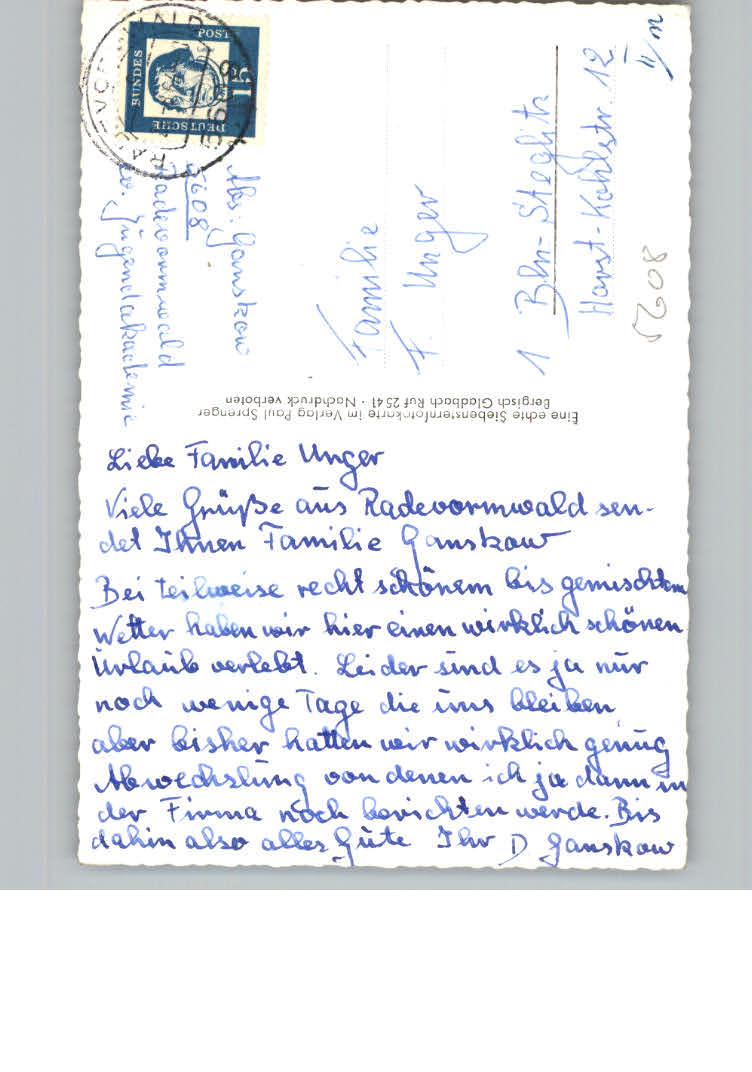 Liebe Familie Unger
Viele Grüße aus Radevormwald sen-
det Ihnen Familie Ganskow
Bei teilweise recht schönem bis gemischtem
Wetter haben wir hier einen wirklich schönen
Urlaub verlebt. Leider sind es ja nur
noch wenige Tage die uns bleiben
aber bisher hatten wir wirklich genug
Abwechslung von denen ich ja dann in
der Firma noch berichten werde. Bis
dahin also alles Gute Ihr D Ganskow
Eine echte Siebensternfotokarte im Verlag Paul Sprenger
Bergisch Gladbach Ruf 2541 · Nachdruck verboten
Abs: Ganskow
5608
Radevormwald
ev. Jugendakademie
Familie
F. Unger
1 Bln-Steglitz
Horst-Kohlstr. 12
II/
5608
DEUTSCHE
BUNDES
POST
15